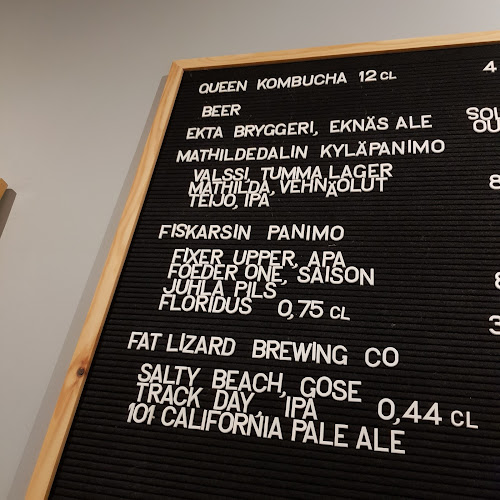 QUEEN KOMBUCHA 12 CL
4
BEER
EKTA BRYGGERI, EKNÄS ALE
SOU
OU
MATHILDEDALIN KYLÄPANIMO
VALSSI, TUMMA LAGER
MATHILDA, VEHNÄOLUT
8
TEIJO, IPA
FISKARSIN PANIMO
FIXER UPPER, APA
FOEDER ONE, SAISON
JUHLA PILS
FLORIDUS 0,75 CL
3
FAT LIZARD BREWING CO
SALTY BEACH, GOSE
TRACK DAY, IPA 0,44 CL
101 CALIFORNIA PALE ALE